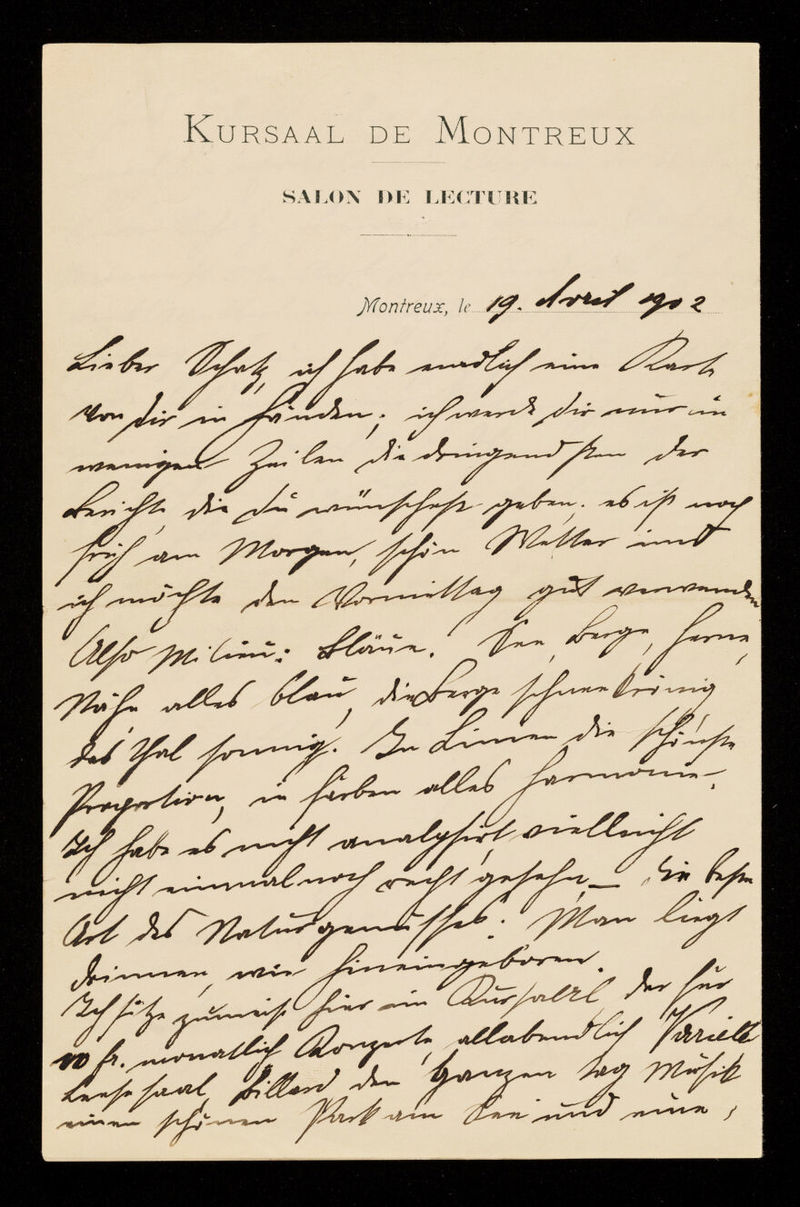 KURSAAL DE MONTREUX
SALON DE LECTURE
Montreux, le 19. April 1902
Lieber Schatz, ich habe endlich eine Karte
von dir in Händen; ich werde dir nur in
wenigen Zeilen die dringendsten der
Berichte, die du wünschest geben. es ist noch
früh am Morgen, schön Wetter und
ich möchte den Vormittag gut verwenden
Also Milieu: Bläue. See, Berge, Ferne,
Nähe alles blau, die Berge schneekörnig
das Thal sonnig. In Linien die schönste
Proportion, in Farben alles Harmonie.
Ich habe es nicht analysirt, vielleicht
nicht einmal noch recht gesehn – die beste
Art des Naturgenusses. Man liegt
drinnen, wie hineingeboren.
Ich sitze zumeist hier im Kursaal der für
10 fr. monatlich Konzerte, allabendlich Varieté
Lesesaal, Billard den ganzen Tag Musik
einen schönen Park am See und eine,